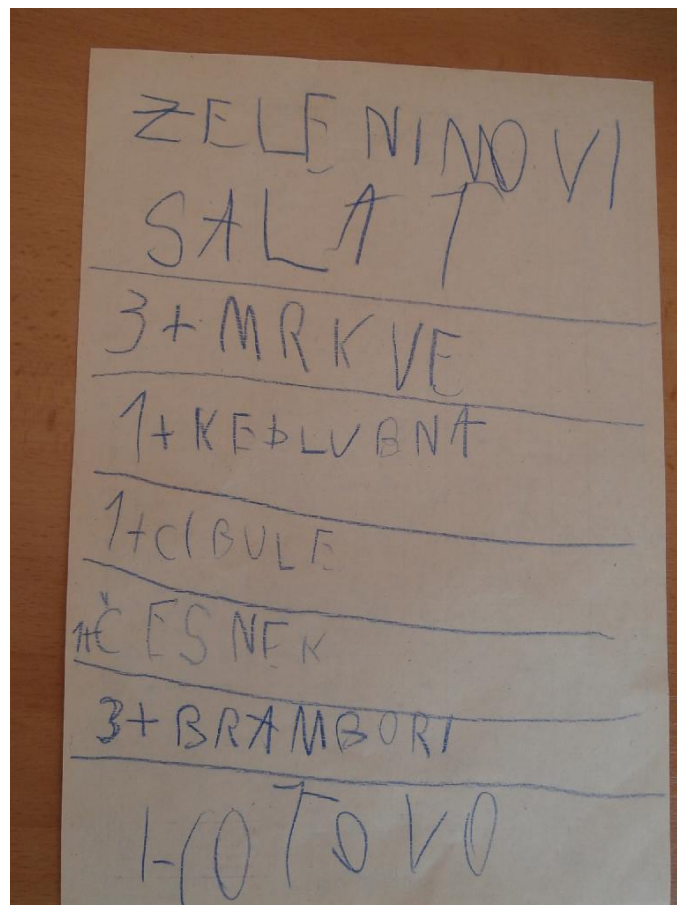 ZELENINOVI
SALAT
3+MRKVE
1+KEDLUBNA
1+CIBULE
1+ČESNEK
3+BRAMBORI
HOTOVO